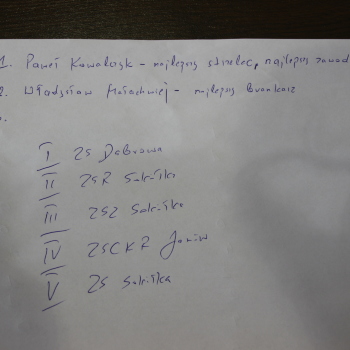 1. Paweł Kowalczyk - najlepszy strzelec, najlepszy zawod
2. Władysław - najlepszy bramkarz
3.
I ZS Dąbrowa
II ZSR Sokółka
III ZSZ Sokółka
IV ZSCKR Janów
V ZS Sokółka